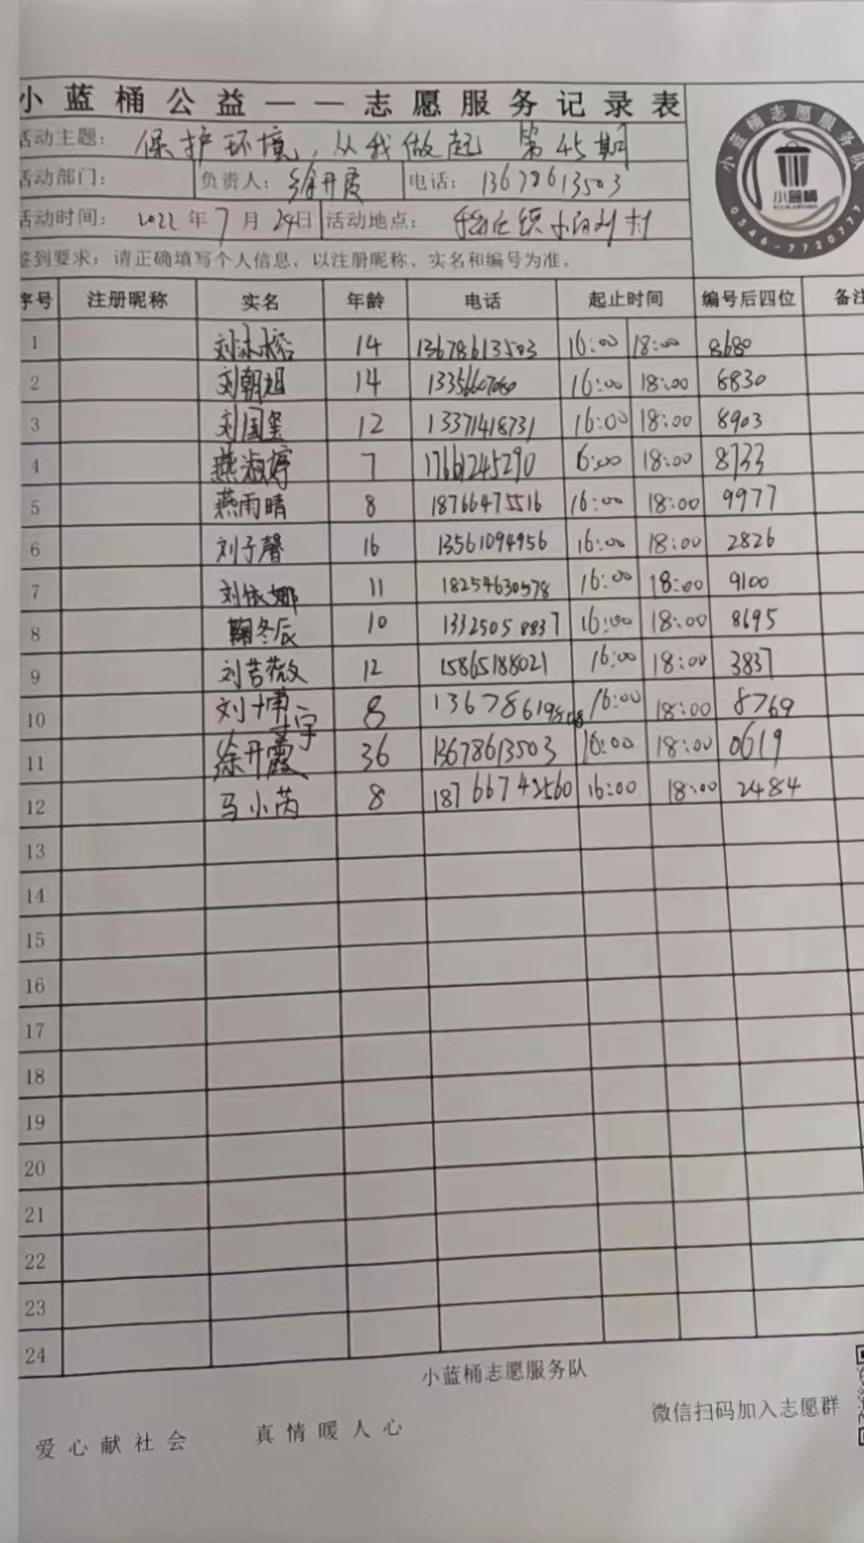 小蓝桶公益——志愿服务记录表
活动主题： 保护环境，从我做起 第45期
活动部门： 负责人：徐开霞 电话：13678613503
活动时间：2022年7月24日 活动地点：
签到要求：请正确填写个人信息，以注册昵称、实名和编号为准。
小蓝桶志愿服务队
小蓝桶
0546-7720777
序号 注册昵称 实名 年龄 电话 起止时间 编号后四位 备注
1 14 13678613503 16:00 18:00 8680
2 刘朝旭 14 16:00 18:00 8830
3 刘国玺 12 13371418731 16:00 18:00 8903
4 燕淑婷 7 17661245290 6:00 18:00 8733
5 燕雨晴 8 18766475516 16:00 18:00 9977
6 刘子馨 16 13561094956 16:00 18:00 2826
7 刘依娜 11 18254630578 16:00 18:00 9100
8 鞠冬辰 10 13325058837 16:00 18:00 8695
9 12 15865188021 16:00 18:00 3837
10 8 16:00 18:00 8769
11 徐开霞 36 13678613503 16:00 18:00 0619
12 马小芮 8 18766742560 16:00 18:00 2484
13
14
15
16
17
18
19
20
21
22
23
24
小蓝桶志愿服务队
爱心献社会 真情暖人心 微信扫码加入志愿群